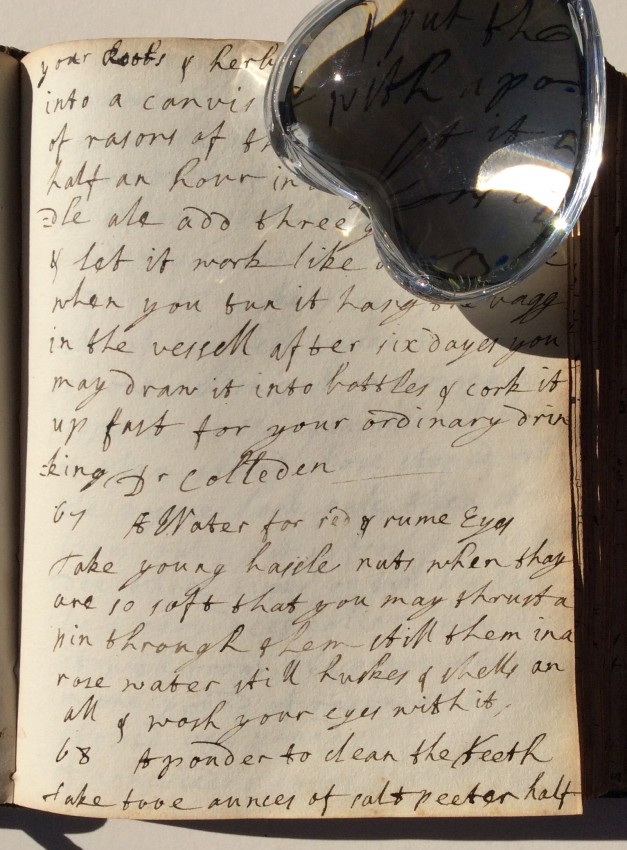 your Roots & herb put the
into a canvis with a po
of rasons of th let it
half an hour in
=dle ale add three
& let it work like
when you tun it hang the bagg
in the vessell after six dayes you
may draw it into bottles & cork it
up fast for your ordinary drin
=king Dr Colleden
67 A Water for red & rume Eyes
Take young hassle nuts when thay
are so soft that you may thrust a
pin through them still them in a
rose water still huskes & shells an
all & wash your eyes with it,
68 A pouder to clean the Teeth
Take tove ounces of salt peeter half